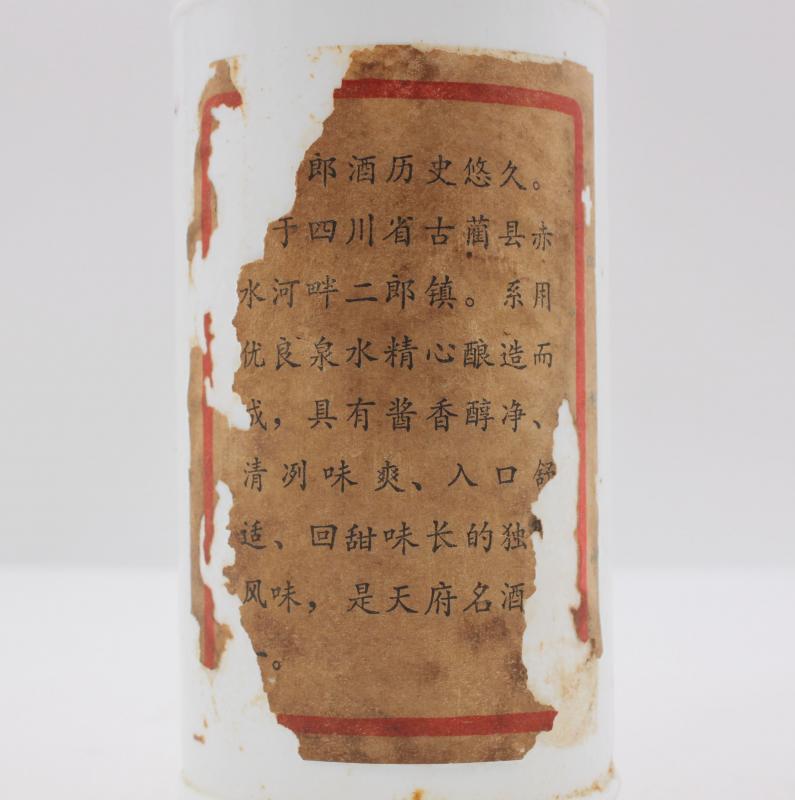 郎酒历史悠久。
于四川省古蔺县赤
水河畔二郎镇。系用
优良泉水精心酿造而
成，具有酱香醇净、
清冽味爽、入口舒
适、回甜味长的独
风味，是天府名酒
一。